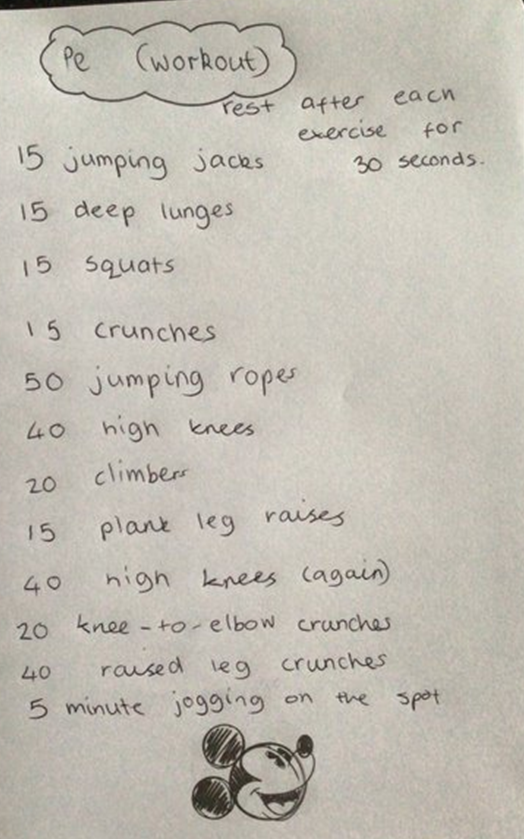 Pe (workout)
rest after each
exercise for
30 seconds.
15 jumping jacks
15 deep lunges
15 squats
15 crunches
50 jumping ropes
40 high knees
20 climbers
15 plank leg raises
40 high knees (again)
20 knee-to-elbow crunches
40 raised leg crunches
5 minute jogging on the spot